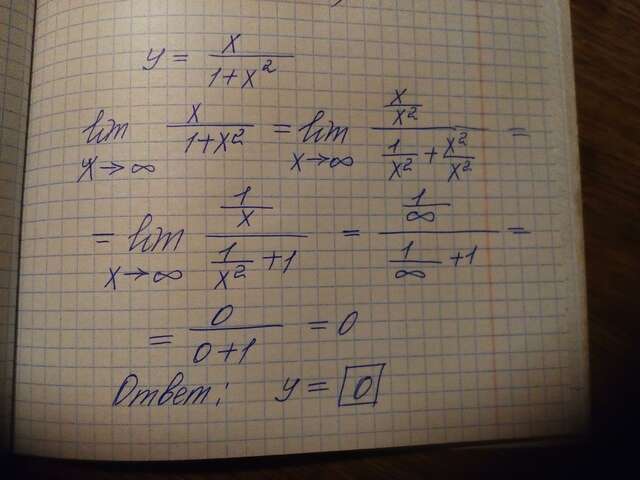 y = x / (1 + x²)
lim x→∞ x / (1 + x²) = lim x→∞ (x/x²) / (1/x² + x²/x²) =
= lim x→∞ (1/x) / (1/x² + 1) = (1/∞) / (1/∞ + 1) =
= 0 / (0 + 1) = 0
Ответ: y = 0